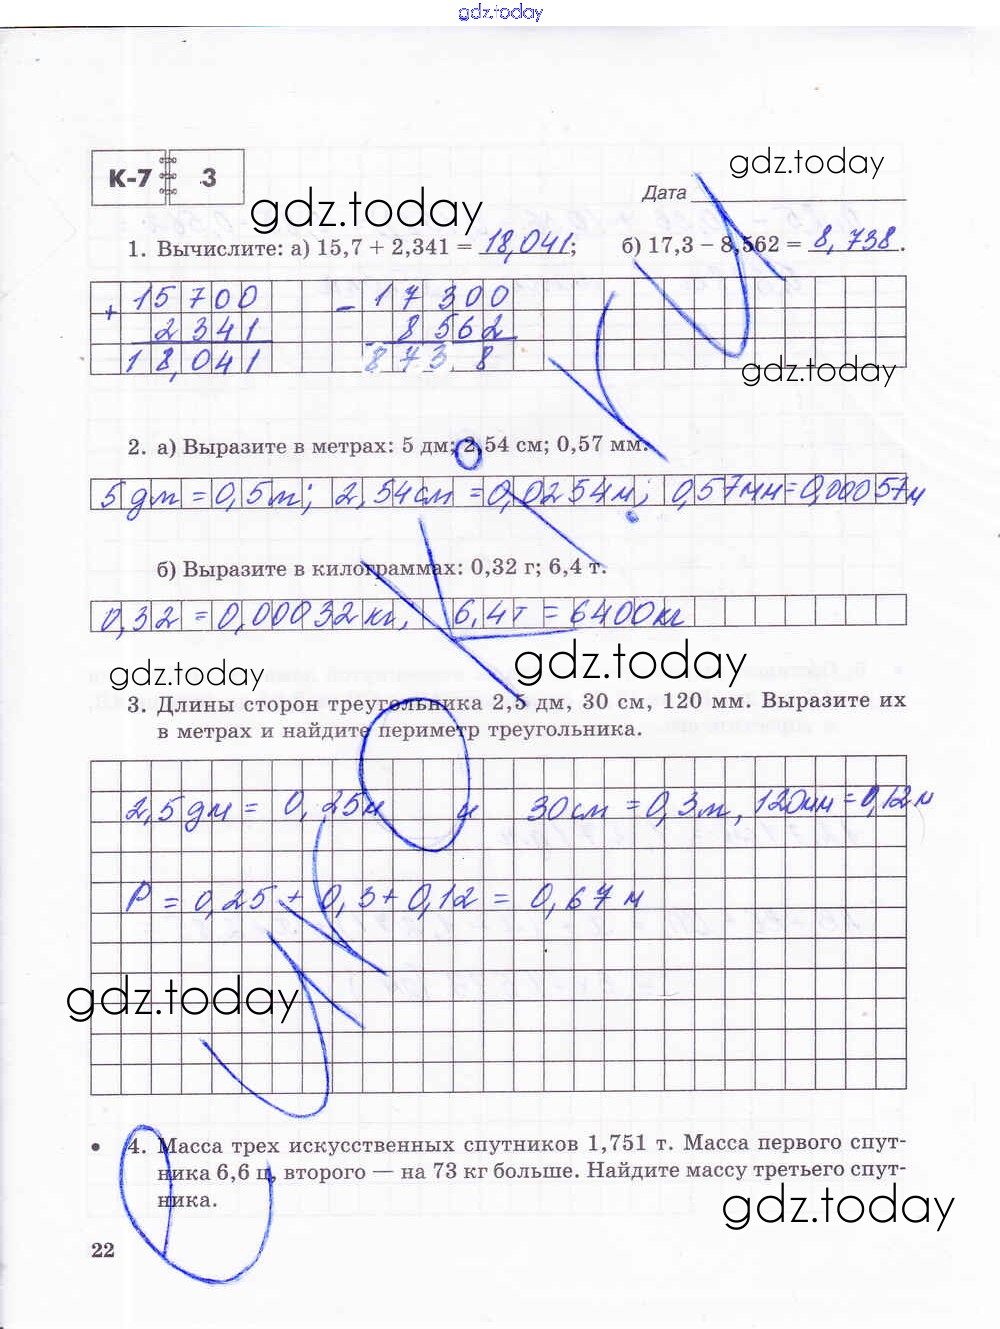 gdz.today
К-7 3
gdz.today
Дата
gdz.today
1. Вычислите: а) 15,7 + 2,341 = 18,041; б) 17,3 – 8,562 = 8,738.
+ 15 700 - 17 300
2 341 8 562
18,041 873 8
gdz.today
2. а) Выразите в метрах: 5 дм; 2,54 см; 0,57 мм.
5 дм = 0,5 м; 2,54 см = 0,0254 м; 0,57 мм = 0,00057 м
б) Выразите в килограммах: 0,32 г; 6,4 т.
0,32 = 0,00032 кг, 6,4 т = 6400 кг
gdz.today
gdz.today
3. Длины сторон треугольника 2,5 дм, 30 см, 120 мм. Выразите их
в метрах и найдите периметр треугольника.
2,5 дм = 0,25 м и 30 см = 0,3 м, 120 мм = 0,12 м
P = 0,25 + 0,3 + 0,12 = 0,67 м
gdz.today
• 4. Масса трех искусственных спутников 1,751 т. Масса первого спут-
ника 6,6 ц, второго — на 73 кг больше. Найдите массу третьего спут-
ника.
gdz.today
22